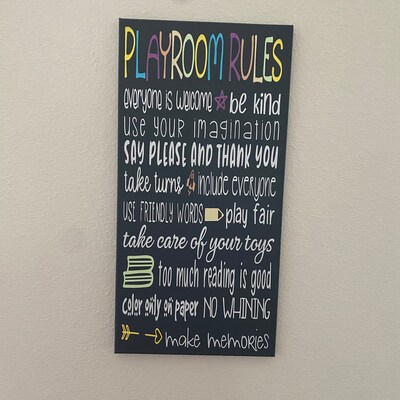 PLAYROOM RULES
everyone is welcome be kind
use your imagination
SAY PLEASE AND THANK YOU
take turns include everyone
USE FRIENDLY WORDS play fair
take care of your toys
too much reading is good
color only on paper NO WHINING
make memories